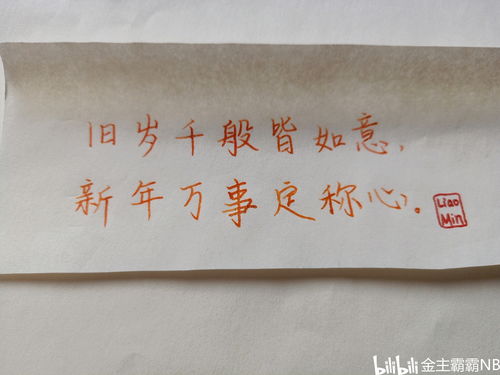 旧岁千般皆如意,
新年万事定称心。
Liao
Min
bilibili 金主霸霸NB